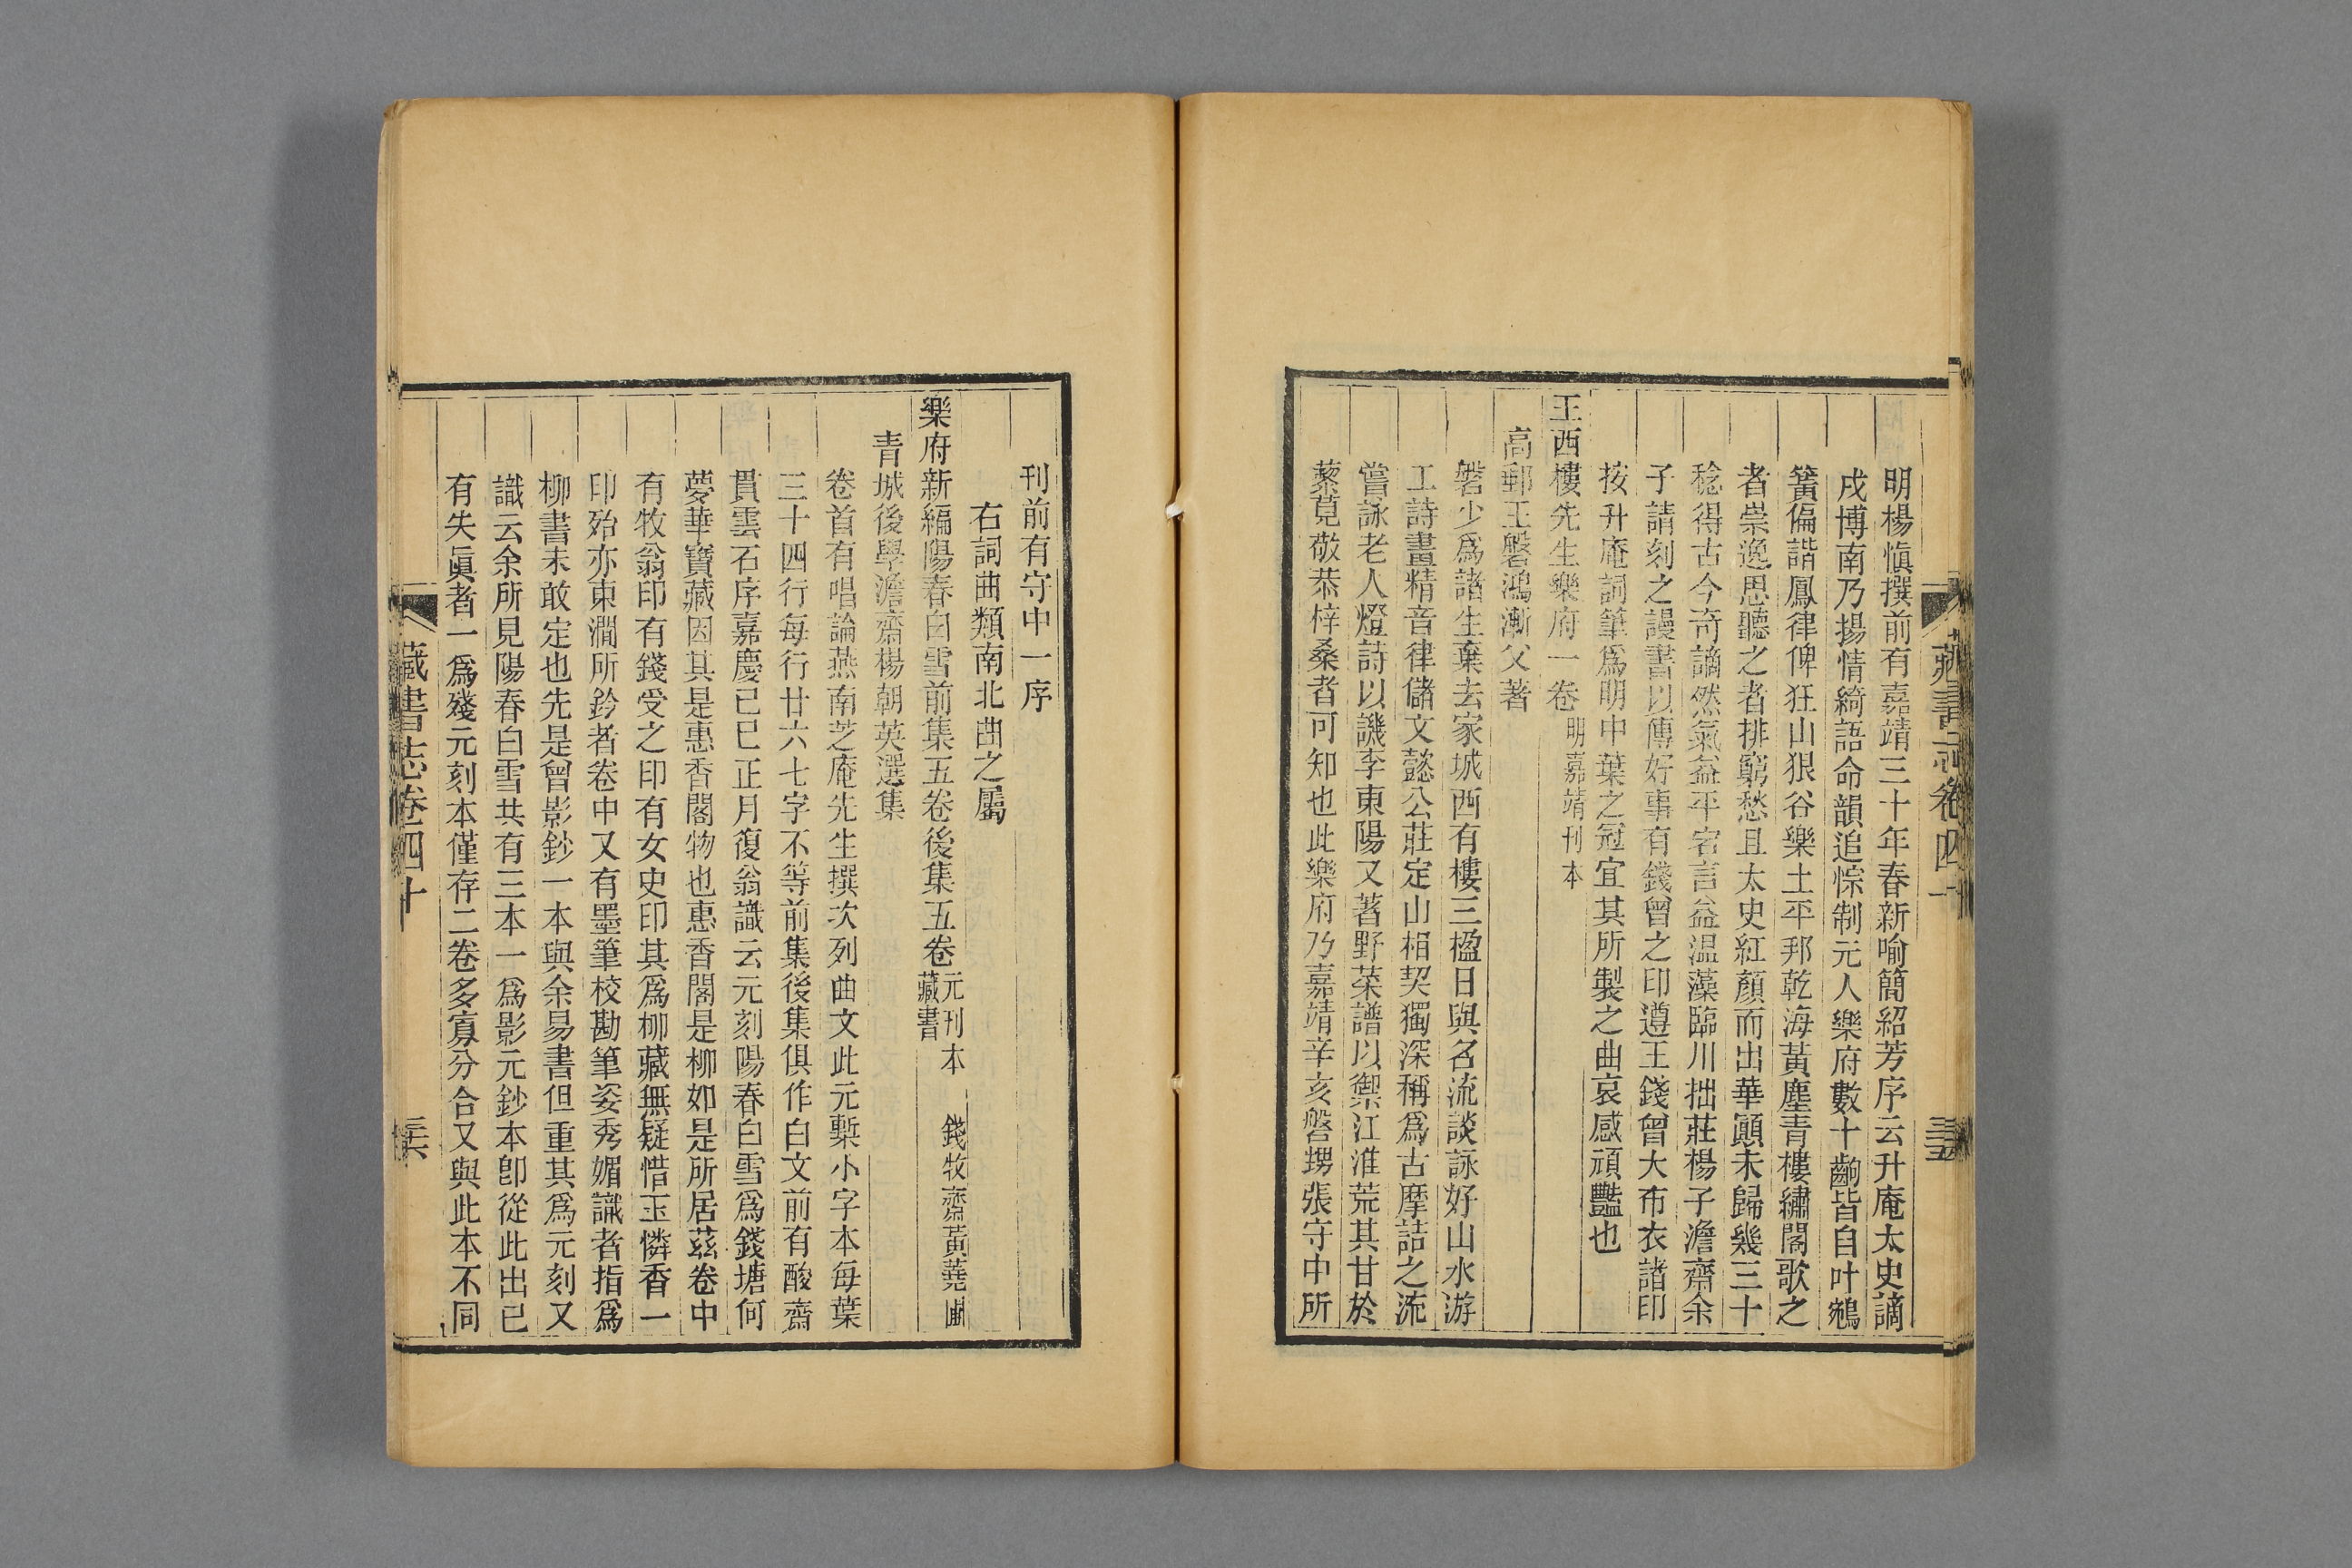 明楊愼撰前有嘉靖三十年春新喻簡紹芳序云升庵太史謫
戍博南乃揚情綺語命韻追悰制元人樂府數十齣皆自叶鵷
簧偏諧鳳律俾狂山狠谷樂土平邦乾海黃塵青樓繡閣歌之
者崇逸思聽之者排窮愁且太史紅顏而出華顚未歸幾三十
稔得古今奇謫然氣益平宕言益温藻臨川拙莊楊子澹齋余
子請刻之謾書以傳好事有錢曾之印遵王錢曾大布衣諸印
按升庵詞筆爲明中葉之冠宜其所製之曲哀感頑豔也
王西樓先生樂府一卷 明嘉靖刊本
高郵王磐鴻漸父著
磐少爲諸生棄去家城西有樓三楹日與名流談詠好山水游
工詩畫精音律儲文懿公莊定山相契獨深稱爲古摩詰之流
嘗詠老人燈詩以譏李東陽又著野菜譜以禦江淮荒其甘於
藜莧敬恭梓桑者可知也此樂府乃嘉靖辛亥磐甥張守中所
藏書志卷四十
三十五
刊前有守中一序
右詞曲類南北曲之屬
樂府新編陽春白雪前集五卷後集五卷 元刊本 錢牧齋黃蕘圃
藏書
青城後學澹齋楊朝英選集
卷首有唱論燕南芝庵先生撰次列曲文此元槧小字本每葉
三十四行每行廿六七字不等前集後集俱作白文前有酸齋
貫雲石序嘉慶已巳正月復翁識云元刻陽春白雪爲錢塘何
夢華寶藏因其是惠香閣物也惠香閣是柳如是所居茲卷中
有牧翁印有錢受之印有女史印其爲柳藏無疑惜玉憐香一
印殆亦東澗所鈐者卷中又有墨筆校勘筆姿秀媚識者指爲
柳書未敢定也先是曾影鈔一本與余易書但重其爲元刻又
識云余所見陽春白雪共有三本一爲影元鈔本卽從此出已
有失眞者一爲殘元刻本僅存二卷多寡分合又與此本不同
藏書志卷四十